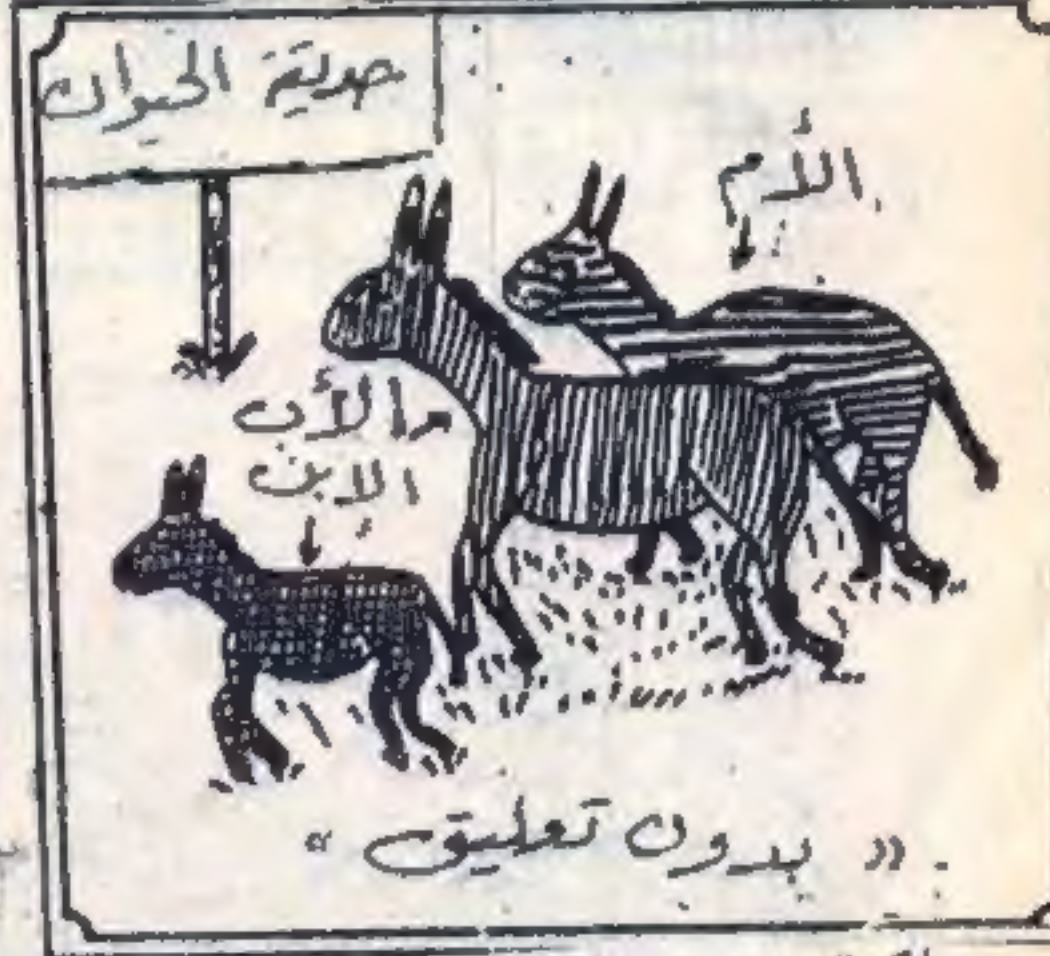 حديقة الحيوان
الأم
الأب
الابن
« بدون تعليق »